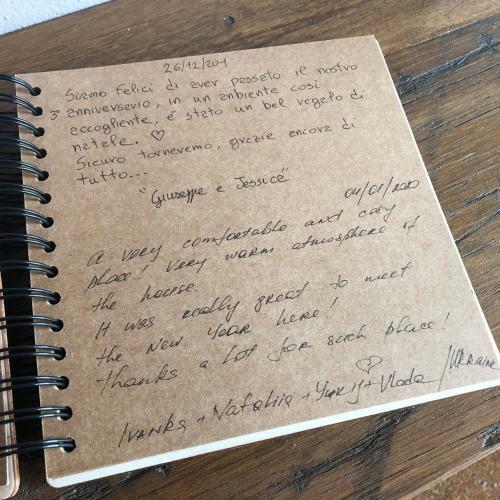 26/12/201
Siamo felici di aver passato il nostro
3° anniversario, in un ambiente così
accogliente, é stato un bel regalo di
natale. ♡
Sicuro torneremo, grazie ancora di
tutto...
"Giuseppe e Jessica"
04/01/2020
A very comfortable and cosy
place! Very warm atmosphere of
the house.
It was really great to meet
the New Year here!
Thanks a lot for such place!
Ivanka + Nataliia + Yurij + Vlada /Ukraine